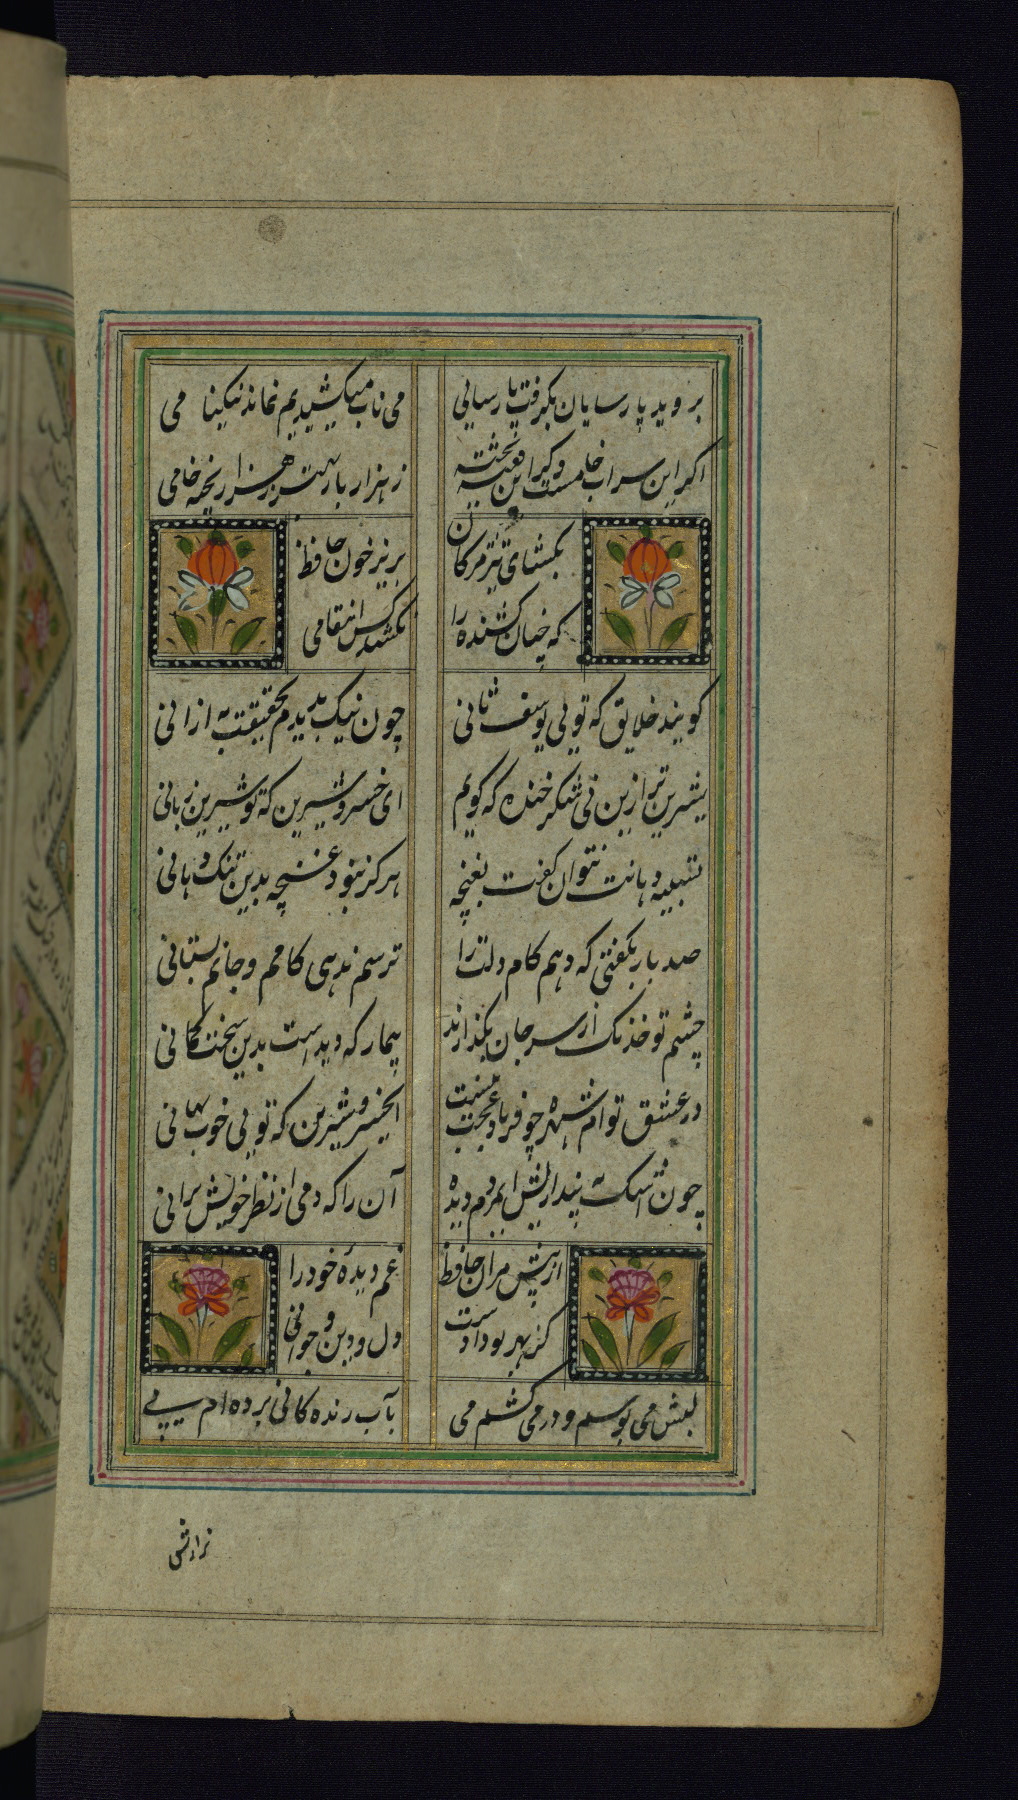 بروید پارسایان بگرفت پارسایی
می ناب میکشیدیم نماند نیکینا می
اکر این سراب خامست وکر این فقیه پخته
ز هزار بار بهتر ز هزار پخته خامی
بکشای تیر مژکان
بریز خون حافظ
که چنان کشنده را
نکشد کس انتقامی
کویند خلایق که تویی یوسف ثانی
چون نیک بدیدم بحقیقت به از آنی
شیرین تر ازین نی شکر خنده که کویم
ای خسرو شیرین که تو شیرین زبانی
تشبیه دهانت نتوان کفت بغنچه
هرکز نبود غنچه بدین تنک دهانی
صد بار بکفتی که دهم کام دلت را
ترسم ندهی کامم و جانم بستانی
چشم تو خدنک از سر جان بکذراند
بیمار که دیدست بدین سخت کمانی
در عشق توام شهره چو فرهاد عجب نیست
ایخسرو شیرین که تویی خوب جهانی
چون اشک بیندازیش ای مردم دیده
آن را که دمی از نظر خویش برانی
از پیش مران حافظ
غم دیده خود را
کز بهر تو دادست
دل و دین و جوانی
لبش می بوسم و در می کشم می
بآب زنده کانی برده ام پی